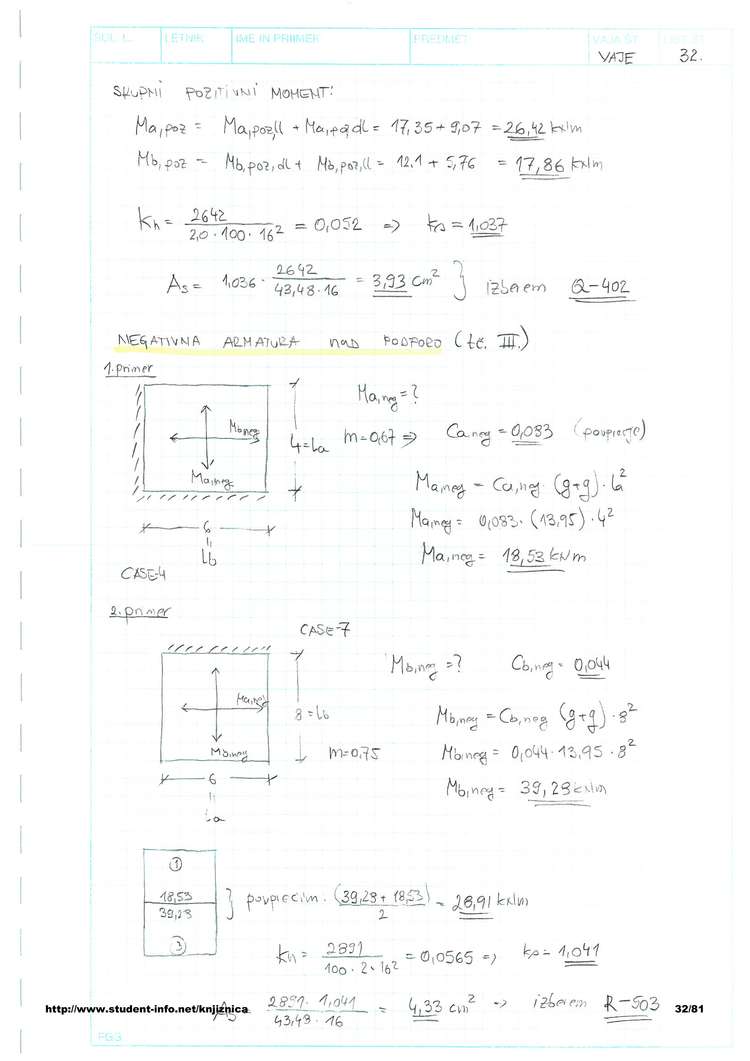 ŠOL. L. LETNIK IME IN PRIIMEK PREDMET VAJA ŠT. LIST ŠT.
VAJE 32.
SKUPNI POZITIVNI MOMENT:
Ma,poz = Ma,poz,ll + Ma,poz,dl = 17,35 + 9,07 = 26,42 kNm
Mb,poz = Mb,poz,dl + Mb,poz,ll = 12,1 + 5,76 = 17,86 kNm
kh = 2642 / 2,0 · 100 · 16² = 0,052 => ks = 1,037
As = 1,036 · 2642 / 43,48 · 16 = 3,93 cm² } izberem Q-402
NEGATIVNA ARMATURA nad PODPORO (tč. III.)
1. primer
Ma,neg = ?
Mb,neg
Ma,neg
4 = La
m = 0,67 => Ca,neg = 0,083 (povprečje)
Ma,neg = Ca,neg · (g+q) · La²
Ma,neg = 0,083 · (13,95) · 4²
Ma,neg = 18,53 kNm
6
Lb
CASE-4
2. primer
CASE-7
Mb,neg = ? Cb,neg = 0,044
Ma,neg
Mb,neg
8 = Lb
m = 0,75
Mb,neg = Cb,neg (g+q) · 8²
Mb,neg = 0,044 · 13,95 · 8²
Mb,neg = 39,28 kNm
6
La
1
18,53
39,28
3
} povprečim. (39,28 + 18,53) / 2 = 28,91 kNm
kh = 2891 / 100 · 2 · 16² = 0,0565 => ks = 1,041
As = 2891 · 1,041 / 43,48 · 16 = 4,33 cm² -> izberem R-503
http://www.student-info.net/knjiznica 32/81
FG3